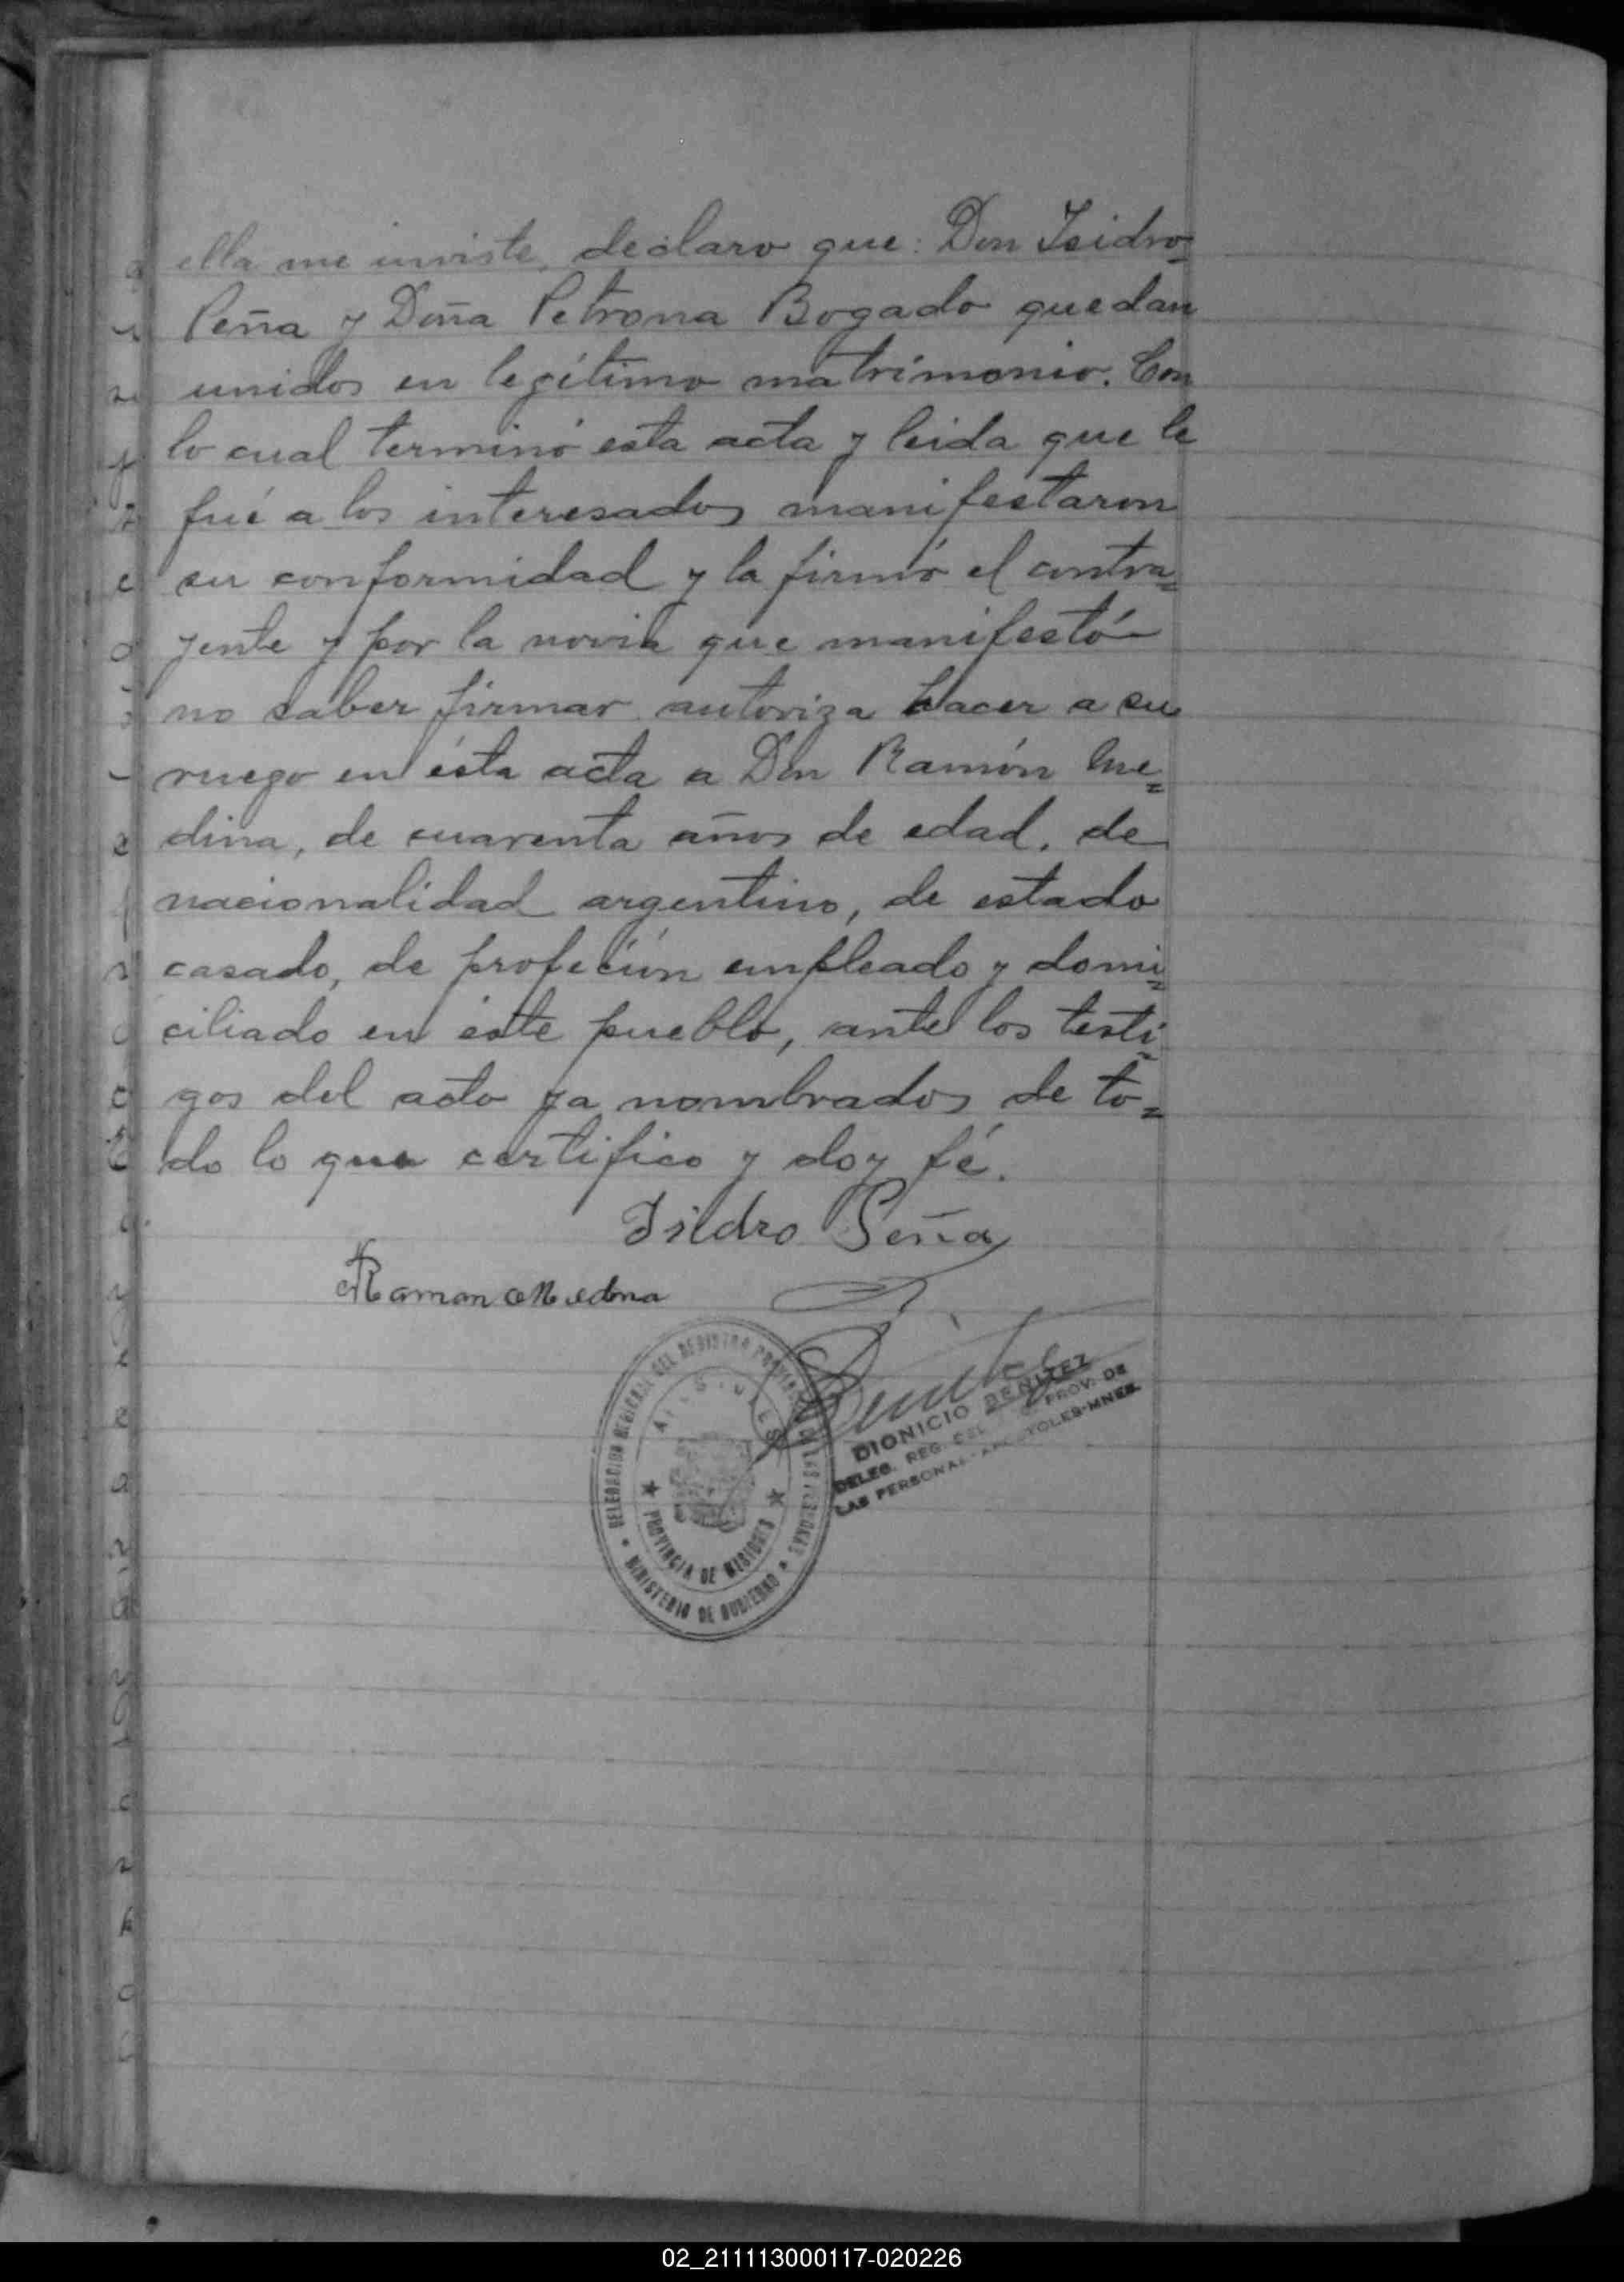 ella me inviste, declaro que: Don Isidro=
Peña y Doña Petrona Bogado quedan
unidos en legítimo matrimonio. Con
lo cual terminó esta acta y leida que le
fué a los interesados manifestaron
su conformidad y la firmó el contra=
yente y por la novia que manifestó
no saber firmar autoriza hacer a su
ruego en ésta acta a Don Ramón Me=
dina, de cuarenta años de edad, de
nacionalidad argentino, de estado
casado, de profeción empleado y domi=
ciliado en éste pueblo, ante los testi=
gos del acto ya nombrados de to=
do lo que certifico y doy fé.
Isidro Peña
Ramon Medina
DELEGACION REGIONAL DEL REGISTRO PROVINCIAL DE LAS PERSONAS
APOSTOLES
PROVINCIA DE MISIONES
MINISTERIO DE GOBIERNO
DIONICIO BENITEZ
DELEG. REG. DEL PROV. DE
LAS PERSONAS-APOSTOLES-MNES.
02_211113000117-020226